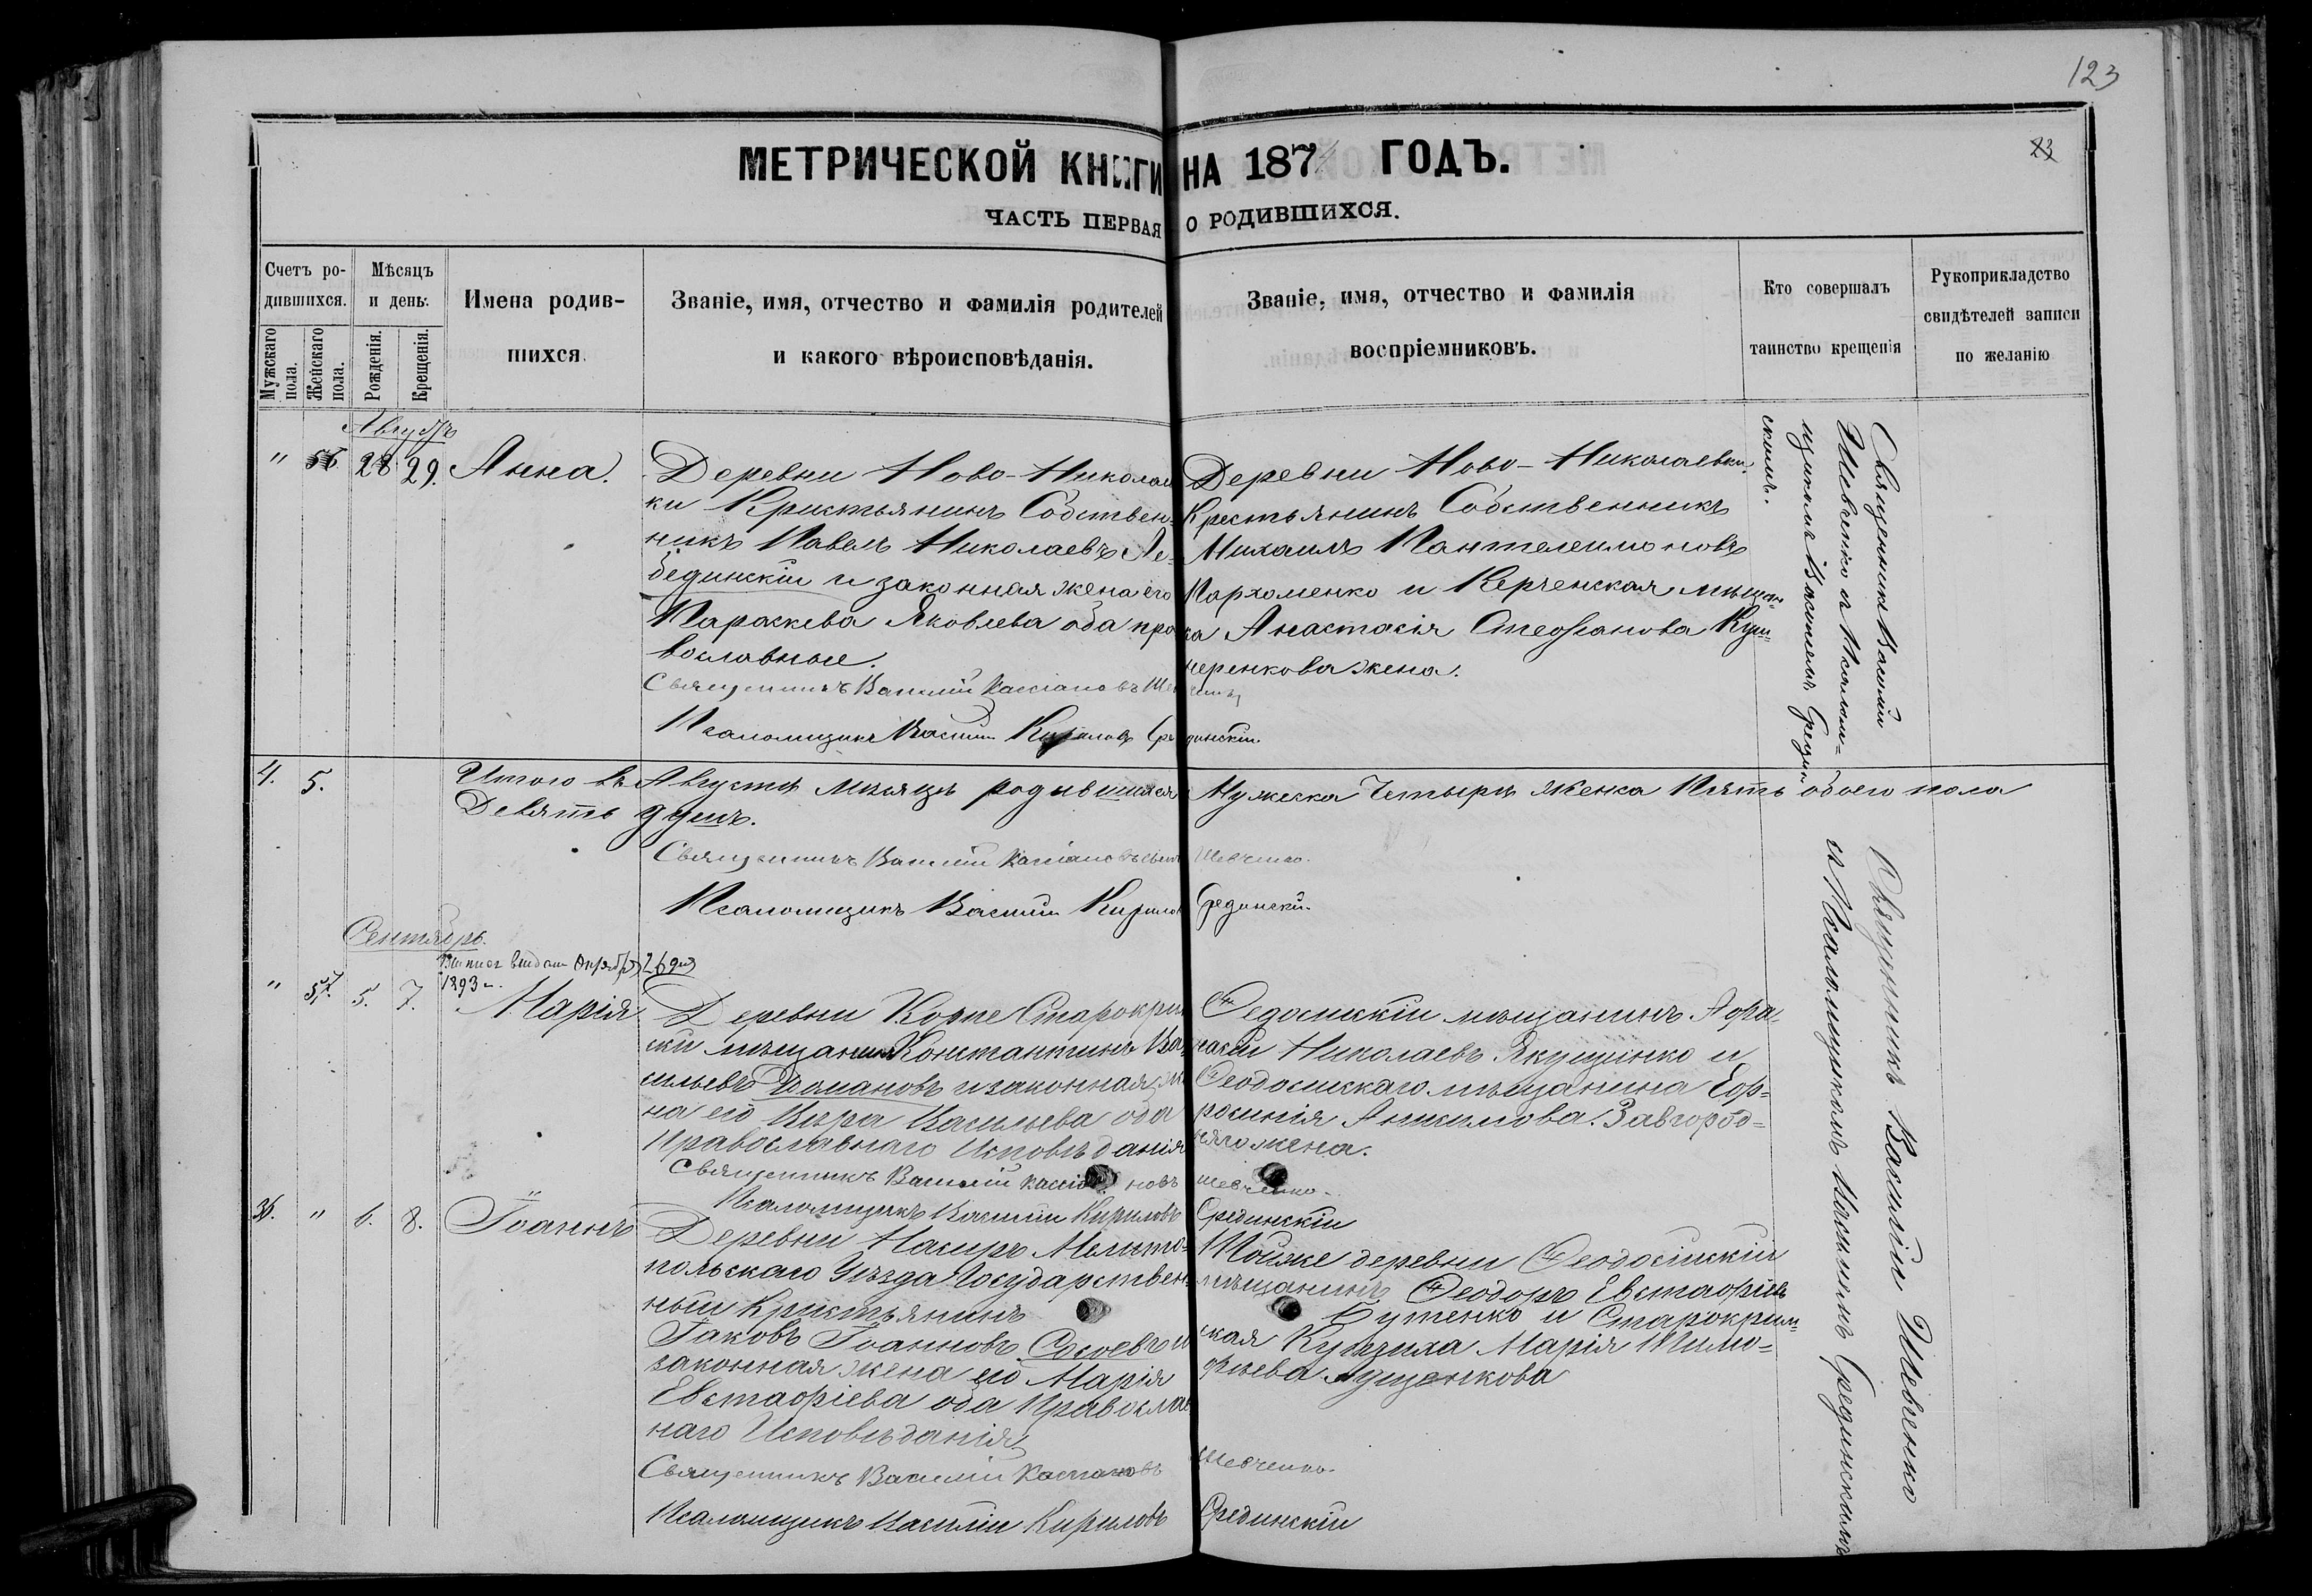 123
23
МЕТРИЧЕСКОЙ КНИГИ НА 1874 ГОДЪ.
ЧАСТЬ ПЕРВАЯ О РОДИВШИХСЯ.
Счетъ ро-
дившихся.
Мужскаго пола.
Женскаго пола.
Мѣсяцъ
и день.
Рожденія.
Крещенія.
Имена родив-
шихся.
Званіе, имя, отчество и фамилія родителей
и какого вѣроисповѣданія.
Званіе, имя, отчество и фамилія
воспріемниковъ.
Кто совершалъ
таинство крещенія
Рукоприкладство
свидѣтелей записи
по желанію
Августъ
" 56 28 29. Анна.
Деревни Ново-Николаев
ки Кристьянинъ Собствен-
никъ Павелъ Николаевъ Ле-
бединскій и законная жена его
Параскева Яковлева оба пра
вославные.
Священникъ Василій Кассіановъ Шевченко
Псаломщикъ Василій Кириловъ Срединскій
Деревни Ново-Николаевки
Крестьянинъ Собственникъ
Михаилъ Пантелеимоновъ
Пархоменко и Керченская мѣщан-
ка Анастасія Стефанова Куш-
неренкова жена.
Священникъ Василій
Шевченко съ Псалом-
щикомъ Василіемъ Средин-
скимъ.
4. 5. Итого въ Августѣ мѣсяцѣ родившихся Мужеска Четыре Женска Пять обоего пола
Девять душъ.
Священникъ Василій Кассіановъ Шевченко.
Псаломщикъ Василій Кирилов Срединскій.
Сентябрь.
выдана 26 дня
1893 г.
" 57. 5. 7. Марія
Деревни Корпе Старокрым
скій мѣщанинъ Константинъ Ва
сильевъ Романовъ и законная же
на его Вѣра Васильева оба
Православнаго Исповѣданія
Священникъ Василій Кассіановъ Шевченко.
Псаломщикъ Василій Кириловъ Срединскій
Федосискій мѣщанинъ Афа-
насій Николаевъ Якущенко и
Феодосискаго мѣщанина Евф-
росинія Анисимова Завгород-
няго жена.
36. " 6. 8. Іоаннъ
Деревни Насыръ Мелито-
польскаго Уѣзда Государствен-
ный Кристьянинъ
Іаковъ Іоанновъ Сысоевъ и
законная жена его Марія
Евстафіева оба Православ
наго Исповѣданія
Священникъ Василій Кассіановъ Шевченко.
Псаломщикъ Василій Кириловъ Срединскій
Тойже деревни Феодосискій
мѣщанинъ Феодоръ Евстафіевъ
Бутенко и Старокрым-
ская Купчиха Марія Тимо-
феева Лущенкова
Священникъ Василій Шевченко
съ Псаломщикомъ Василіемъ Срединскимъ